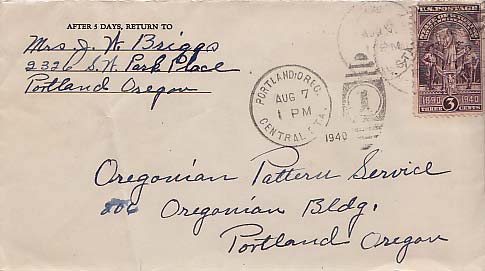 AFTER 5 DAYS, RETURN TO
Mrs. J. W. Briggs
2326 S.W. Park Place
Portland Oregon
PORTLAND, OREG.
AUG 7
1 PM
CENTRAL STA.
1940
U.S. POSTAGE
1890 1940
THREE 3 CENTS
Oregonian Pattern Service
206 Oregonian Bldg.
Portland Oregon